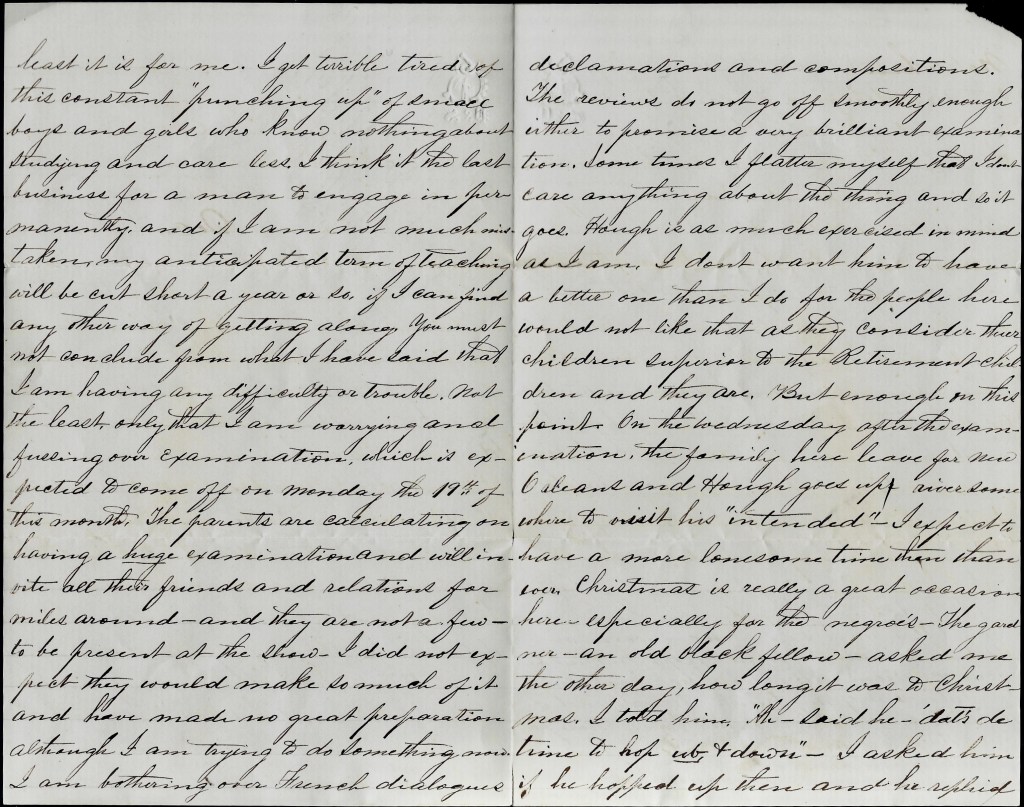 least it is for me. I get terrible tired of
this constant "punching up" of small
boys and girls who know nothing about
studying and care less. I think it the last
business for a man to engage in per-
manently, and if I am not much mis-
taken, my anticipated term of teaching
will be cut short a year or so, if I can find
any other way of getting along. You must
not conclude from what I have said that
I am having any difficulty or trouble. Not
the least, only that I am worrying and
fussing over Examination, which is ex-
pected to come off on Monday the 19th of
this month. The parents are calculating on
having a huge examination and will in-
vite all their friends and relations for
miles around - and they are not a few -
to be present at the show - I did not ex-
pect they would make so much of it
and have made no great preparation
although I am trying to do something now.
I am bothering over French dialogues
declamations and compositions.
The reviews do not go off smoothly enough
either to promise a very brilliant examina
tion. Some times I flatter myself that I dont
care anything about the thing and so it
goes. Hough is as much exercised in mind
as I am. I dont want him to have
a better one than I do for the people here
would not like that as they consider their
children superior to the Retirement chil-
dren and they are. But enough on this
point. On the Wednesday after the exam-
ination, the family here leave for New
Orleans and Hough goes up river some
where to visit his "intended" - I expect to
have a more lonesome time then than
ever. Christmas is really a great occasion
here - especially for the negroes - The gard
ner - an old black fellow - asked me
the other day, how long it was to Christ-
mas. I told him. "Ah - said he - 'dat's de
time to hop up & down" - I asked him
if he hopped up then and he replied